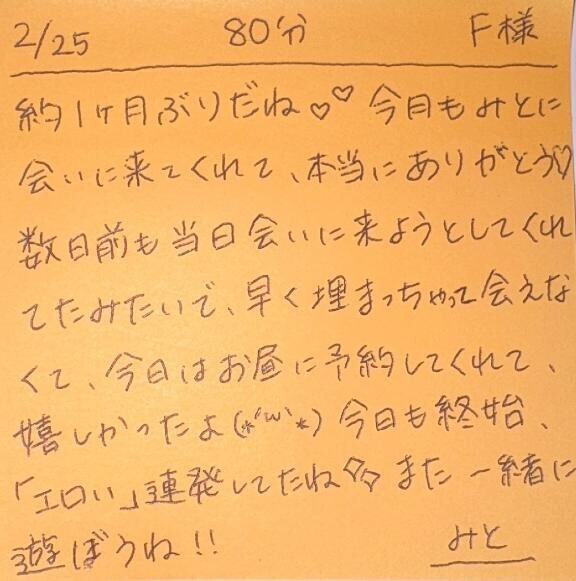 2/25 80分 F様
約1ヶ月ぶりだね♡♡ 今月もみとに
会いに来てくれて、本当にありがとう♡
数日前も当日会いに来ようとしてくれ
てたみたいで、早く埋まっちゃって会えな
くて、今日はお昼に予約してくれて、
嬉しかったよ(*´ω`*) 今日も終始、
「エロい」連発してたね♡♡ また一緒に
遊ぼうね!!
みと